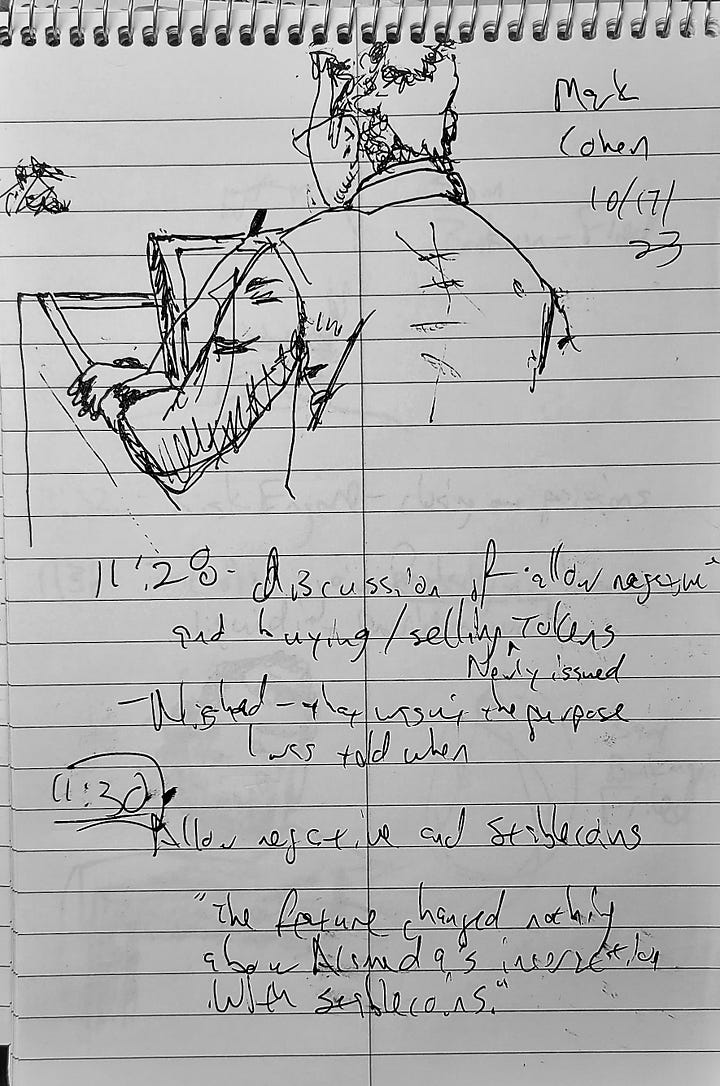 Mark
Cohen
10/17/
23
11:28 - discussion of "allow negative"
and buying/selling Tokens
Newly issued
- Nishad - that wasn't the purpose
I was told when
11:30
Allow negative and Stablecoins
"The feature changed nothing
about Alameda's interaction
with stablecoins."